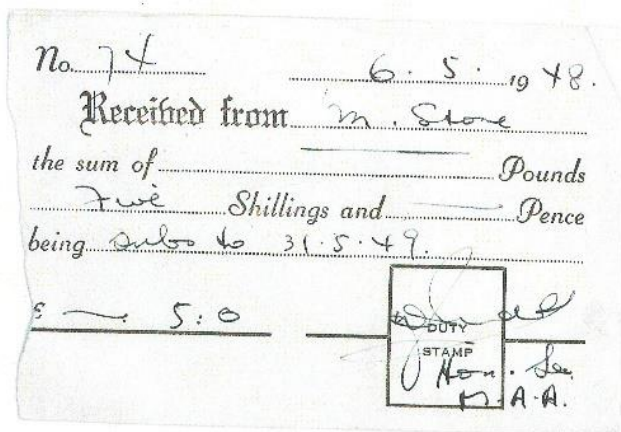 No. 74 6.5.1948.
Received from M. Stone
the sum of — Pounds
Five Shillings and — Pence
being subs to 31.5.49.
£ — : 5:0
DUTY
STAMP
Hon.
M.A.A.